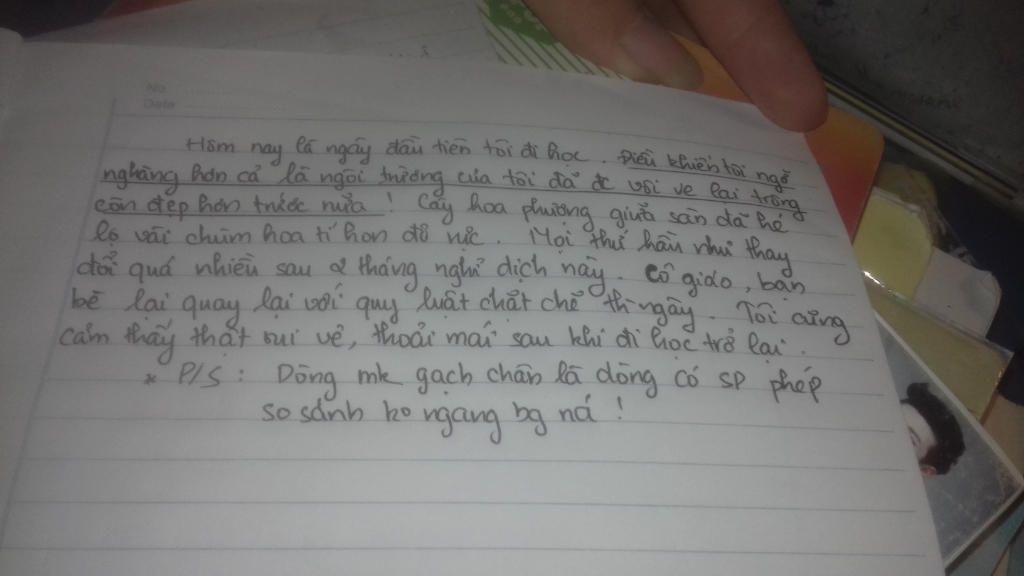 No.
Date
Hôm nay là ngày đầu tiên tôi đi học. Điều khiến tôi ngỡ
nghàng hơn cả là ngôi trường của tôi đã đc vôi ve lại trông
còn đẹp hơn trước nữa! Cây hoa phượng giữa sân đã hé
lộ vài chùm hoa tí hon đỏ rực. Mọi thứ hầu như thay
đổi quá nhiều sau 2 tháng nghỉ dịch này. Cô giáo, bạn
bè lại quay lại với quy luật chặt chẽ thì ngày. Tôi cũng
cảm thấy thật vui vẻ, thoải mái sau khi đi học trở lại.
* P/S: Dòng mk gạch chân là dòng có sp phép
so sánh ko ngang bg ná!